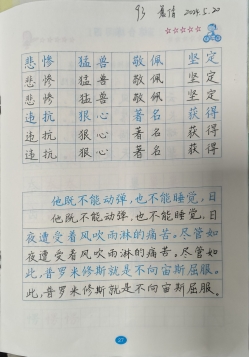 93 2024.5.22
悲惨 猛兽 敬佩 坚定
悲惨 猛兽 敬佩 坚定
悲惨 猛兽 敬佩 坚定
违抗 狠心 著名 获得
违抗 狠心 著名 获得
违抗 狠心 著名 获得
他既不能动弹，也不能睡觉，日
他既不能动弹，也不能睡觉，日
夜遭受着风吹雨淋的痛苦。尽管如
夜遭受着风吹雨淋的痛苦。尽管如
此，普罗米修斯就是不向宙斯屈服。
此，普罗米修斯就是不向宙斯屈服。